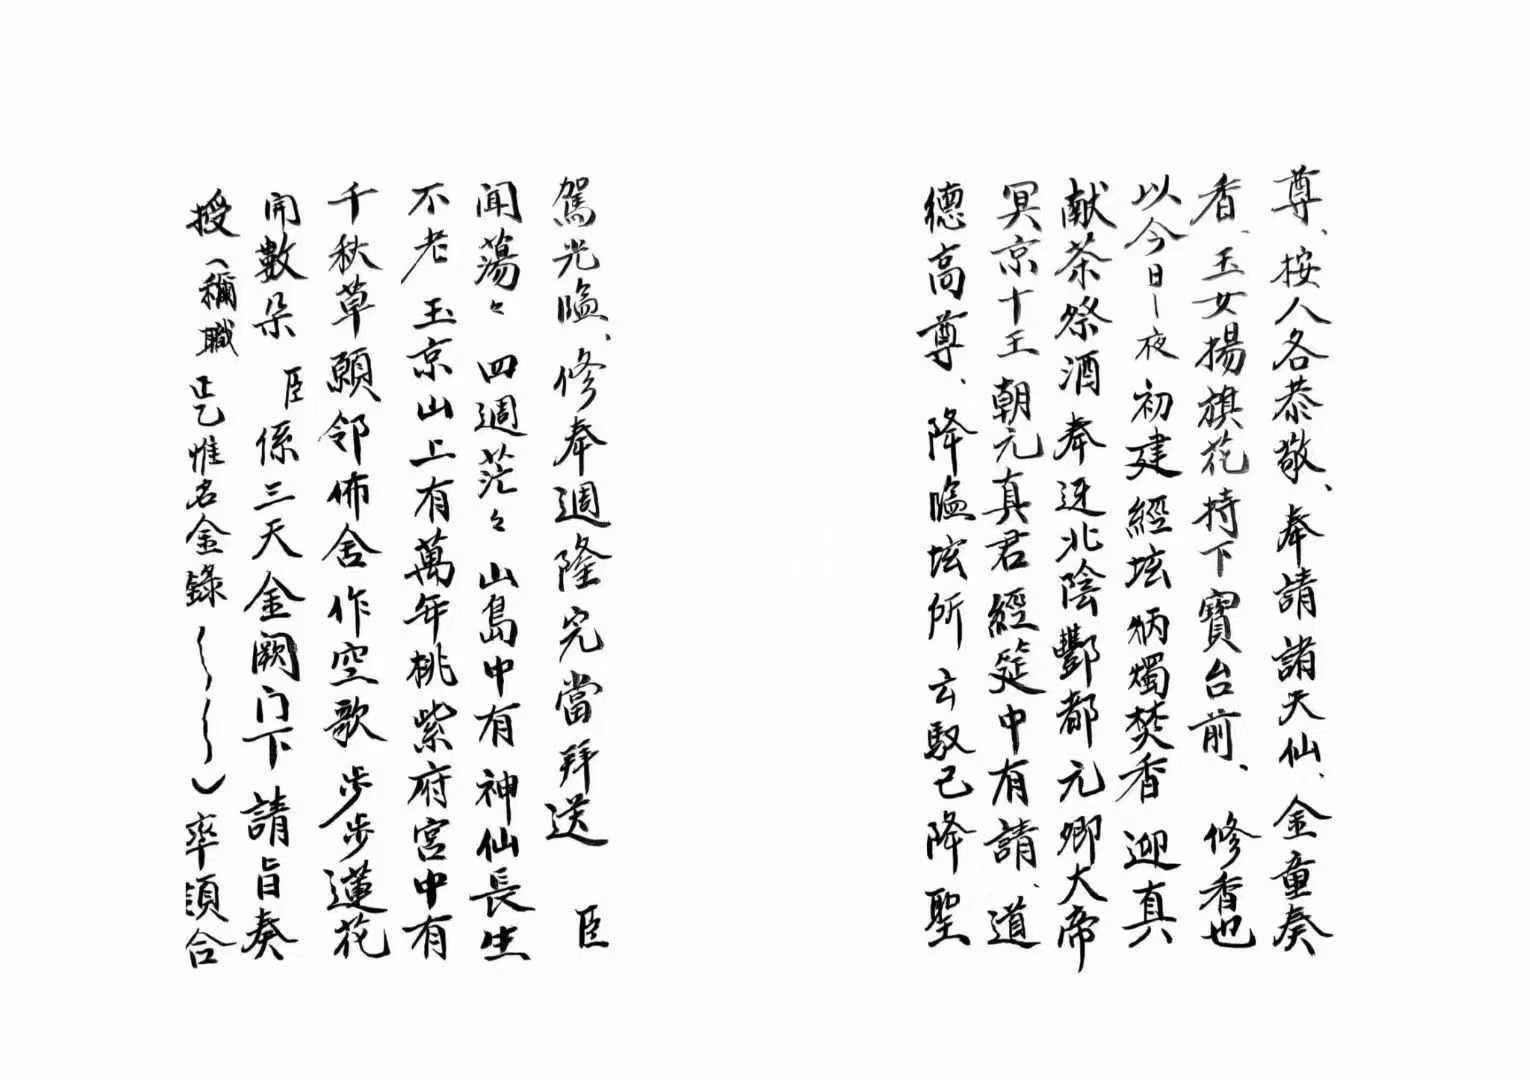 尊、按人各恭敬、奉請諸天仙、金童奏
香、玉女揚旗花持下寶台前、修香也
以今日丨夜初建經坛炳燭焚香迎真
献茶祭酒奉迓北陰酆都元卿大帝
冥京十王朝元真君經筵中有請、道
德高尊、降臨坛所玄馭已降聖
駕光臨、修奉週隆完當拜送 臣
闻蕩々四週茫々山島中有神仙長生
不老玉京山上有萬年桃紫府宮中有
千秋草願邻佈舍作空歌步步蓮花
開數朵 臣係三天金阙门下請旨奏
授（稱職 惟名金錄）率領合